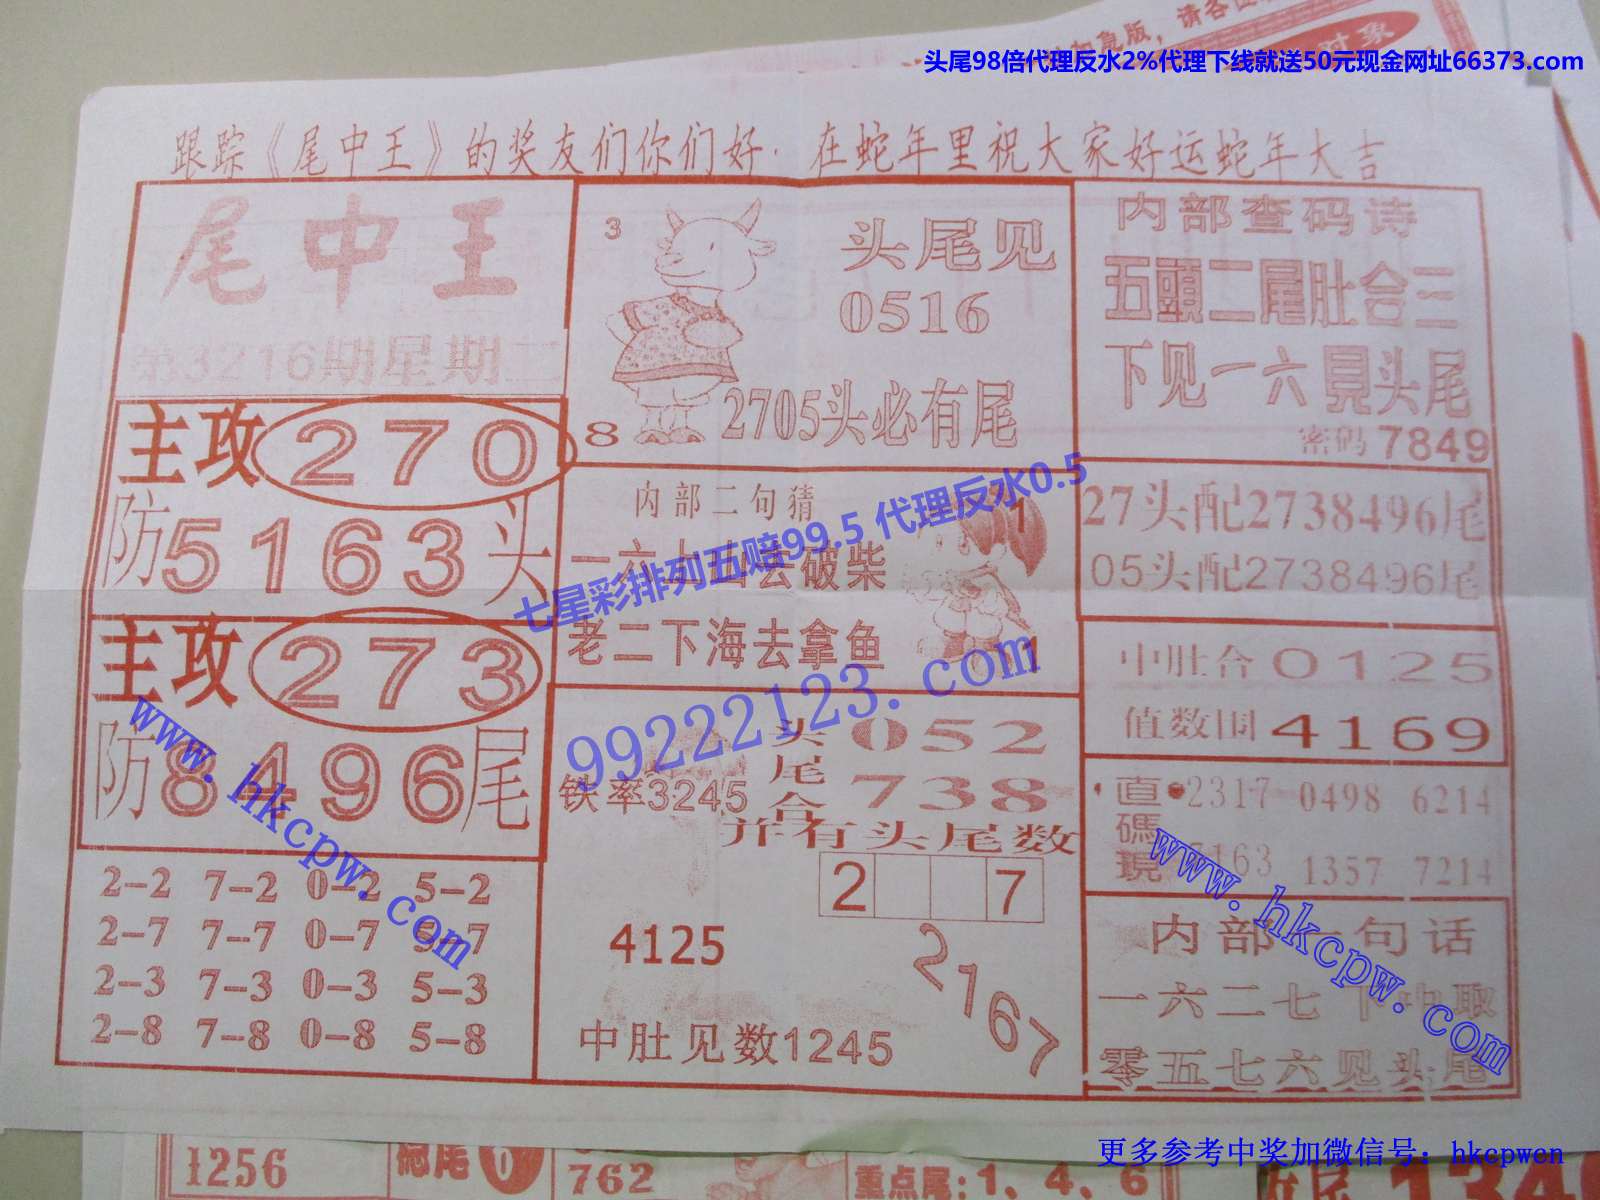 头尾98倍代理反水2%代理下线就送50元现金网址66373.com
急版，请各位
跟踪《尾中王》的奖友们你们好．在蛇年里祝大家好运蛇年大吉
尾中王
第3216期星期二
主攻270
防5163头
主攻273
防8496尾
2-2 7-2 0-2 5-2
2-7 7-7 0-7 5-7
2-3 7-3 0-3 5-3
2-8 7-8 0-8 5-8
3
头尾见
0516
8
2705头必有尾
内部二句猜
去破柴
老二下海去拿鱼
1
1
七星彩排列五赔99.5 代理反水0.5
99222123.com
铁率3245
头尾合
052
738
并有头尾数
2 7
4125
2167
中肚见数1245
内部查码诗
五頭二尾肚合三
下见一六見头尾
密码7849
27头配2738496尾
05头配2738496尾
中肚合0125
值数围4169
直碼現
2317 0498 6214
5163 1357 7214
内部一句话
一六二七下中取
零五七六见头尾
www.hkcpw.com
www.hkcpw.com
1256
稳尾0
762
重点尾：1、4、6
更多参考中奖加微信号：hkcpwcn